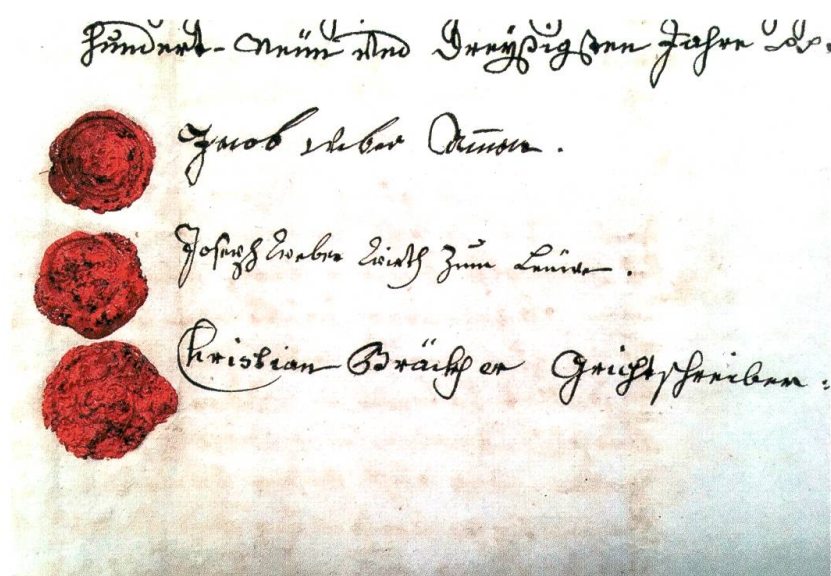 hundert- Neün und Dreÿßigsten Jahre
Jacob Weber Amman.
Joseph Weber Wirth zum Leüwe.
Christian Bräckher Grichtschreiber